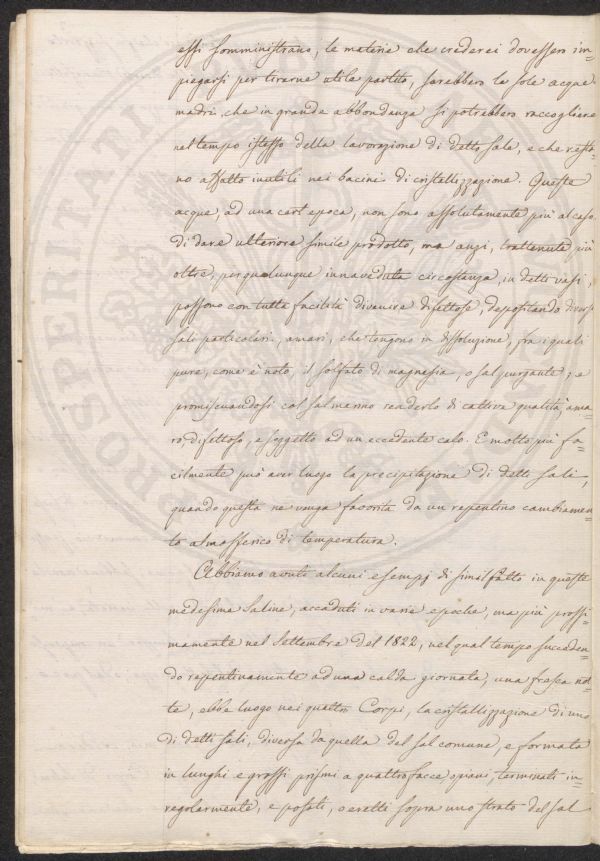 essi somministrano, le materie che crederei dovessero im=
piegarsi per tirarne utile partito, sarebbero le sole acque
madri, che in grande abbondanza si potrebbero raccogliere
nel tempo istesso della lavorazione di detto sale, e che resta=
no affatto inutili nei bacini di cristallizzazione. Queste
acque, ad una cert'epoca, non sono assolutamente più al caso
di dare ulteriore simile prodotto, ma anzi, trattenute più
oltre, per qualunque innaveduta circostanza, in detti vasi,
possono con tutta facilità divenire difettose, depositando diversi
sali particolari, amari, che tengono in dissoluzione, fra i quali
pure, come è noto, il solfato di magnesia, o sal purgante; e
promiscuandosi col sal marino renderlo di cattiva qualità, ama=
ro difettoso, e soggetto ad un eccedente calo. E molto più fa=
cilmente può aver luogo la precipitazione di detti sali,
quando questa ne venga favorita da un repentino cambiamen=
to atmosferico di temperatura.
Abbiamo avuti alcuni esempj di simil fatto in queste
medesime Saline, accaduti in varie epoche, ma più prossi=
mamente nel Settembre del 1822, nel qual tempo succeden=
do repentinamente ad una calda giornata, una fresca not=
te, ebbe luogo nei quattro Corpi, la cristallizzazione di uno
di detti sali, diversa da quella del sal comune, e formata
in lunghi e grossi prismi a quattro facce spiani, terminati ir=
regolarmente, e posati, o eretti sopra uno strato del sal
PROSPERITATI